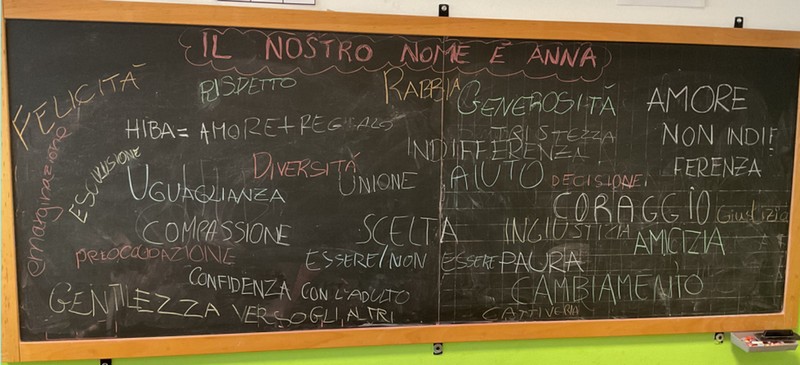 IL NOSTRO NOME È ANNA
FELICITÀ
RISPETTO
RABBIA
GENEROSITÀ
AMORE
emarginazione
ESCLUSIONE
HIBA = AMORE + REGALO
TRISTEZZA
INDIFFERENZA
NON INDIF
FERENZA
DIVERSITÀ
UGUAGLIANZA
UNIONE
AIUTO
DECISIONE
CORAGGIO
Giustizia
COMPASSIONE
SCELTA
INGIUSTIZIA
AMICIZIA
PREOCCUPAZIONE
ESSERE/NON ESSERE
PAURA
CONFIDENZA CON L'ADULTO
CAMBIAMENTO
GENTILEZZA VERSO GLI ALTRI
CATTIVERIA